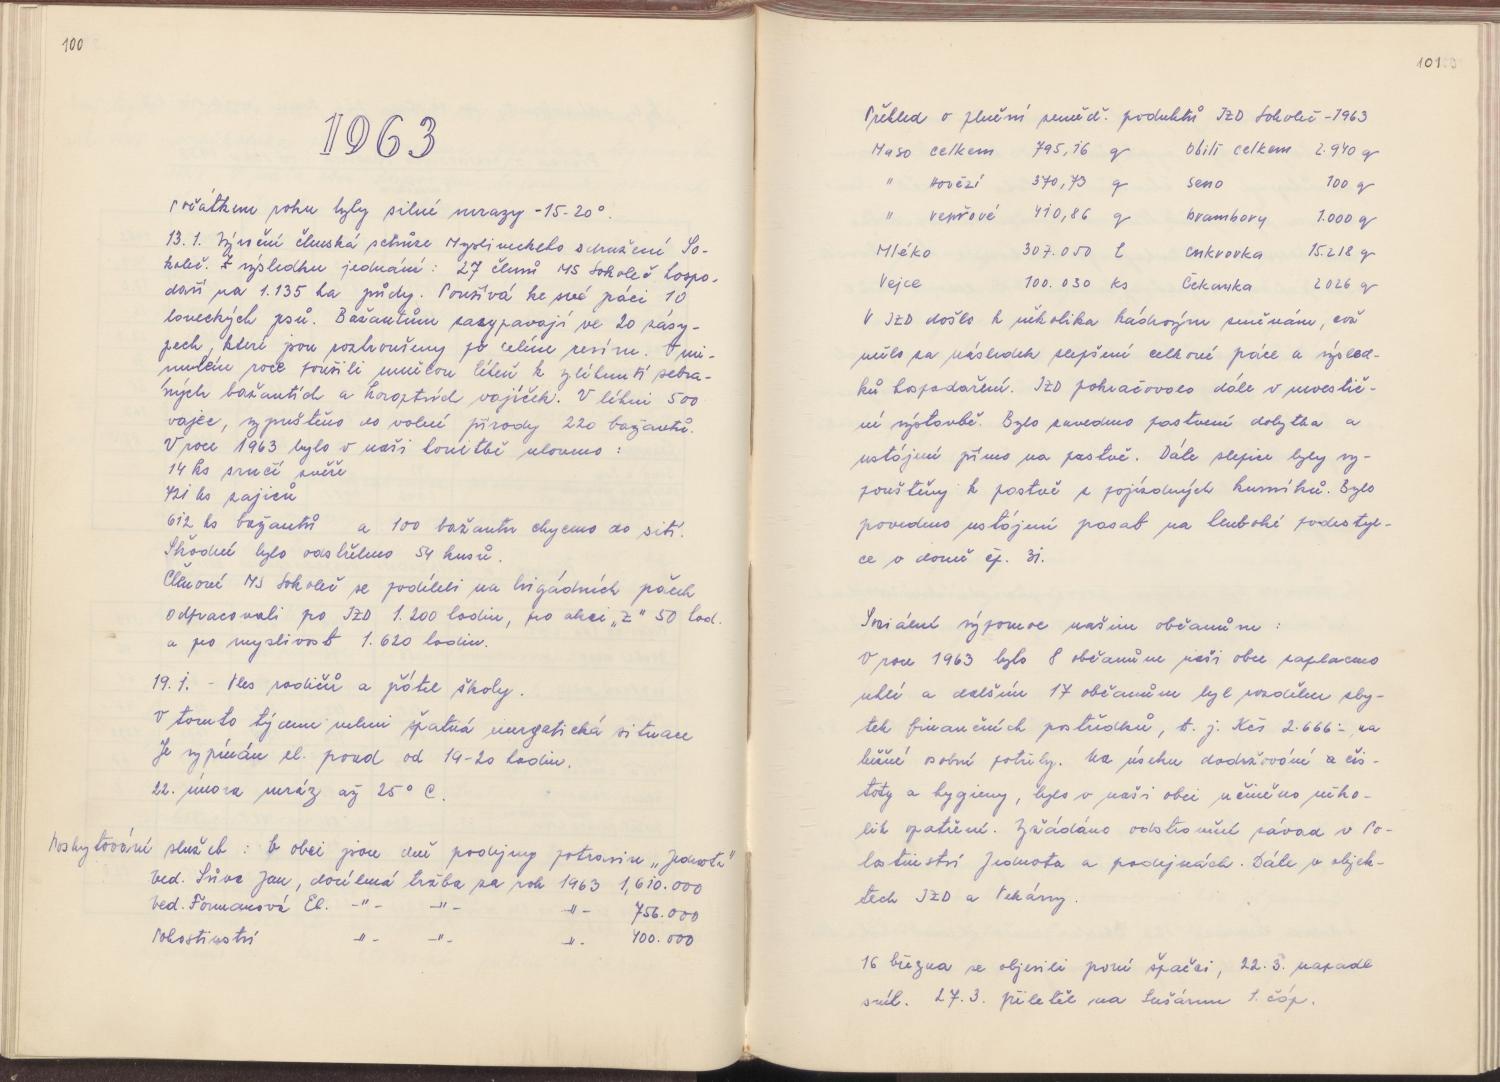 100
1963
Počátkem roku byly silné mrazy -15-20°.
13.1. Výroční členská schůze Mysliveckého sdružení So-
koleč. Z výsledku jednání: 27 členů MS Sokoleč hospo-
daří na 1.135 ha půdy. Používá ke své práci 10
loveckých psů. Bažantům zasypavají ve 20 zásy-
pech, které jsou roztroušeny po celém revíru. V mi-
nulém roce použili umělou líheň k vylíhnutí sebra-
ných bažantích a koroptvích vajíček. V líhni 500
vajec, vypuštěno do volné přírody 220 bažantů.
V roce 1963 bylo v naši honitbě uloveno:
14 ks srnčí zvěře
721 ks zajíců
612 ks bažantů a 100 bažantů chyceno do sítí.
Škodné bylo odstřeleno 54 kusů.
Členové MS Sokoleč se podíleli na brigádních pácech
odpracovali po JZD 1.200 hodin, pro akci „Z" 50 hod.
a pro myslivost 1.620 hodin.
19.1. - Ples rodičů a přátel školy.
V tomto týdenu velmi špatná energetická situace
Je vypínán el. proud od 14-20 hodin.
22. února mráz až 25° C.
Poskytování služeb: V obci jsou dvě prodejny potravin „Jednota"
ved. Sůva Jan, docílená tržba za rok 1963 1,610.000
ved. Formanová El. -"- -"- -"- 756.000
Pohostinství -"- -"- -"- 400.000
101
Přehled o plnění zeměd. poduktů JZD Sokoleč -1963
Maso celkem 795,16 q Obilí celkem 2.940 q
" hovězí 370,73 q seno 100 q
" vepřové 410,86 q brambory 1.000 q
Mléko 307.050 l cukrovka 15.218 q
Vejce 100.030 ks Čekanka 2026 q
V JZD došlo k několika kádrovým změnám, což
mělo za následek zlepšení celkové práce a výsled-
ků hospodaření. JZD pokračovalo dále v investič-
ní výstavbě. Bylo zavedeno pastvení dobytka a
ustájení přímo na pastvě. Dále slepice byly vy-
pouštěny k pastvě z pojízdných kurníků. Bylo
provedeno ustájení prasat na hluboké podestýl-
ce v domě čp. 31.
Sociální výpomoc našim občanům:
V roce 1963 bylo 8 občanům naši obce zaplaceno
uhlí a dalším 17 občanům byl rozdělen zby-
tek finančních postředků, t. j. Kčs 2.666:- na
běžné osobní potřeby. Na úseku dodržování a čis-
toty a hygieny, bylo v naši obci učiněno něko-
lik opatření. Zžádáno odstranění závad v Po-
hostinství Jednota a prodejnách. Dále v objek-
tech JZD a Pekárny.
16 března se objevili první špačci, 22.3. napadl
sníh. 27.3. přiletěl na Sušárnu 1. čáp.